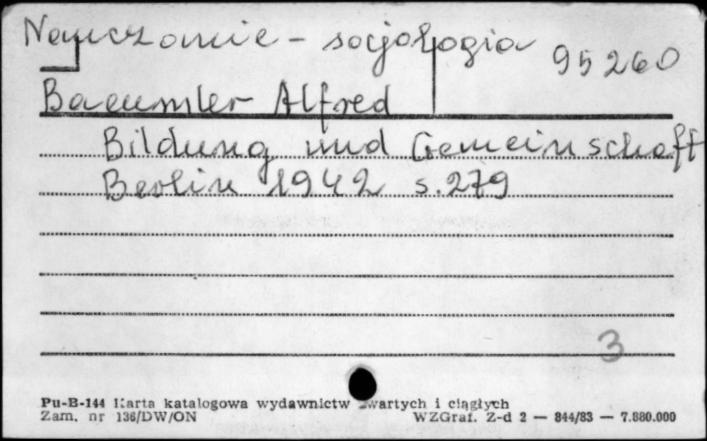 Nauczanie - socjologia 95260
Baeumler Alfred
Bildung und Gemeinschaft
Berlin 1942 s. 279
3
Pu-B-144 Karta katalogowa wydawnictw zwartych i ciągłych
Zam. nr 136/DW/ON WZGraf. Z-d 2 — 844/83 — 7.880.000